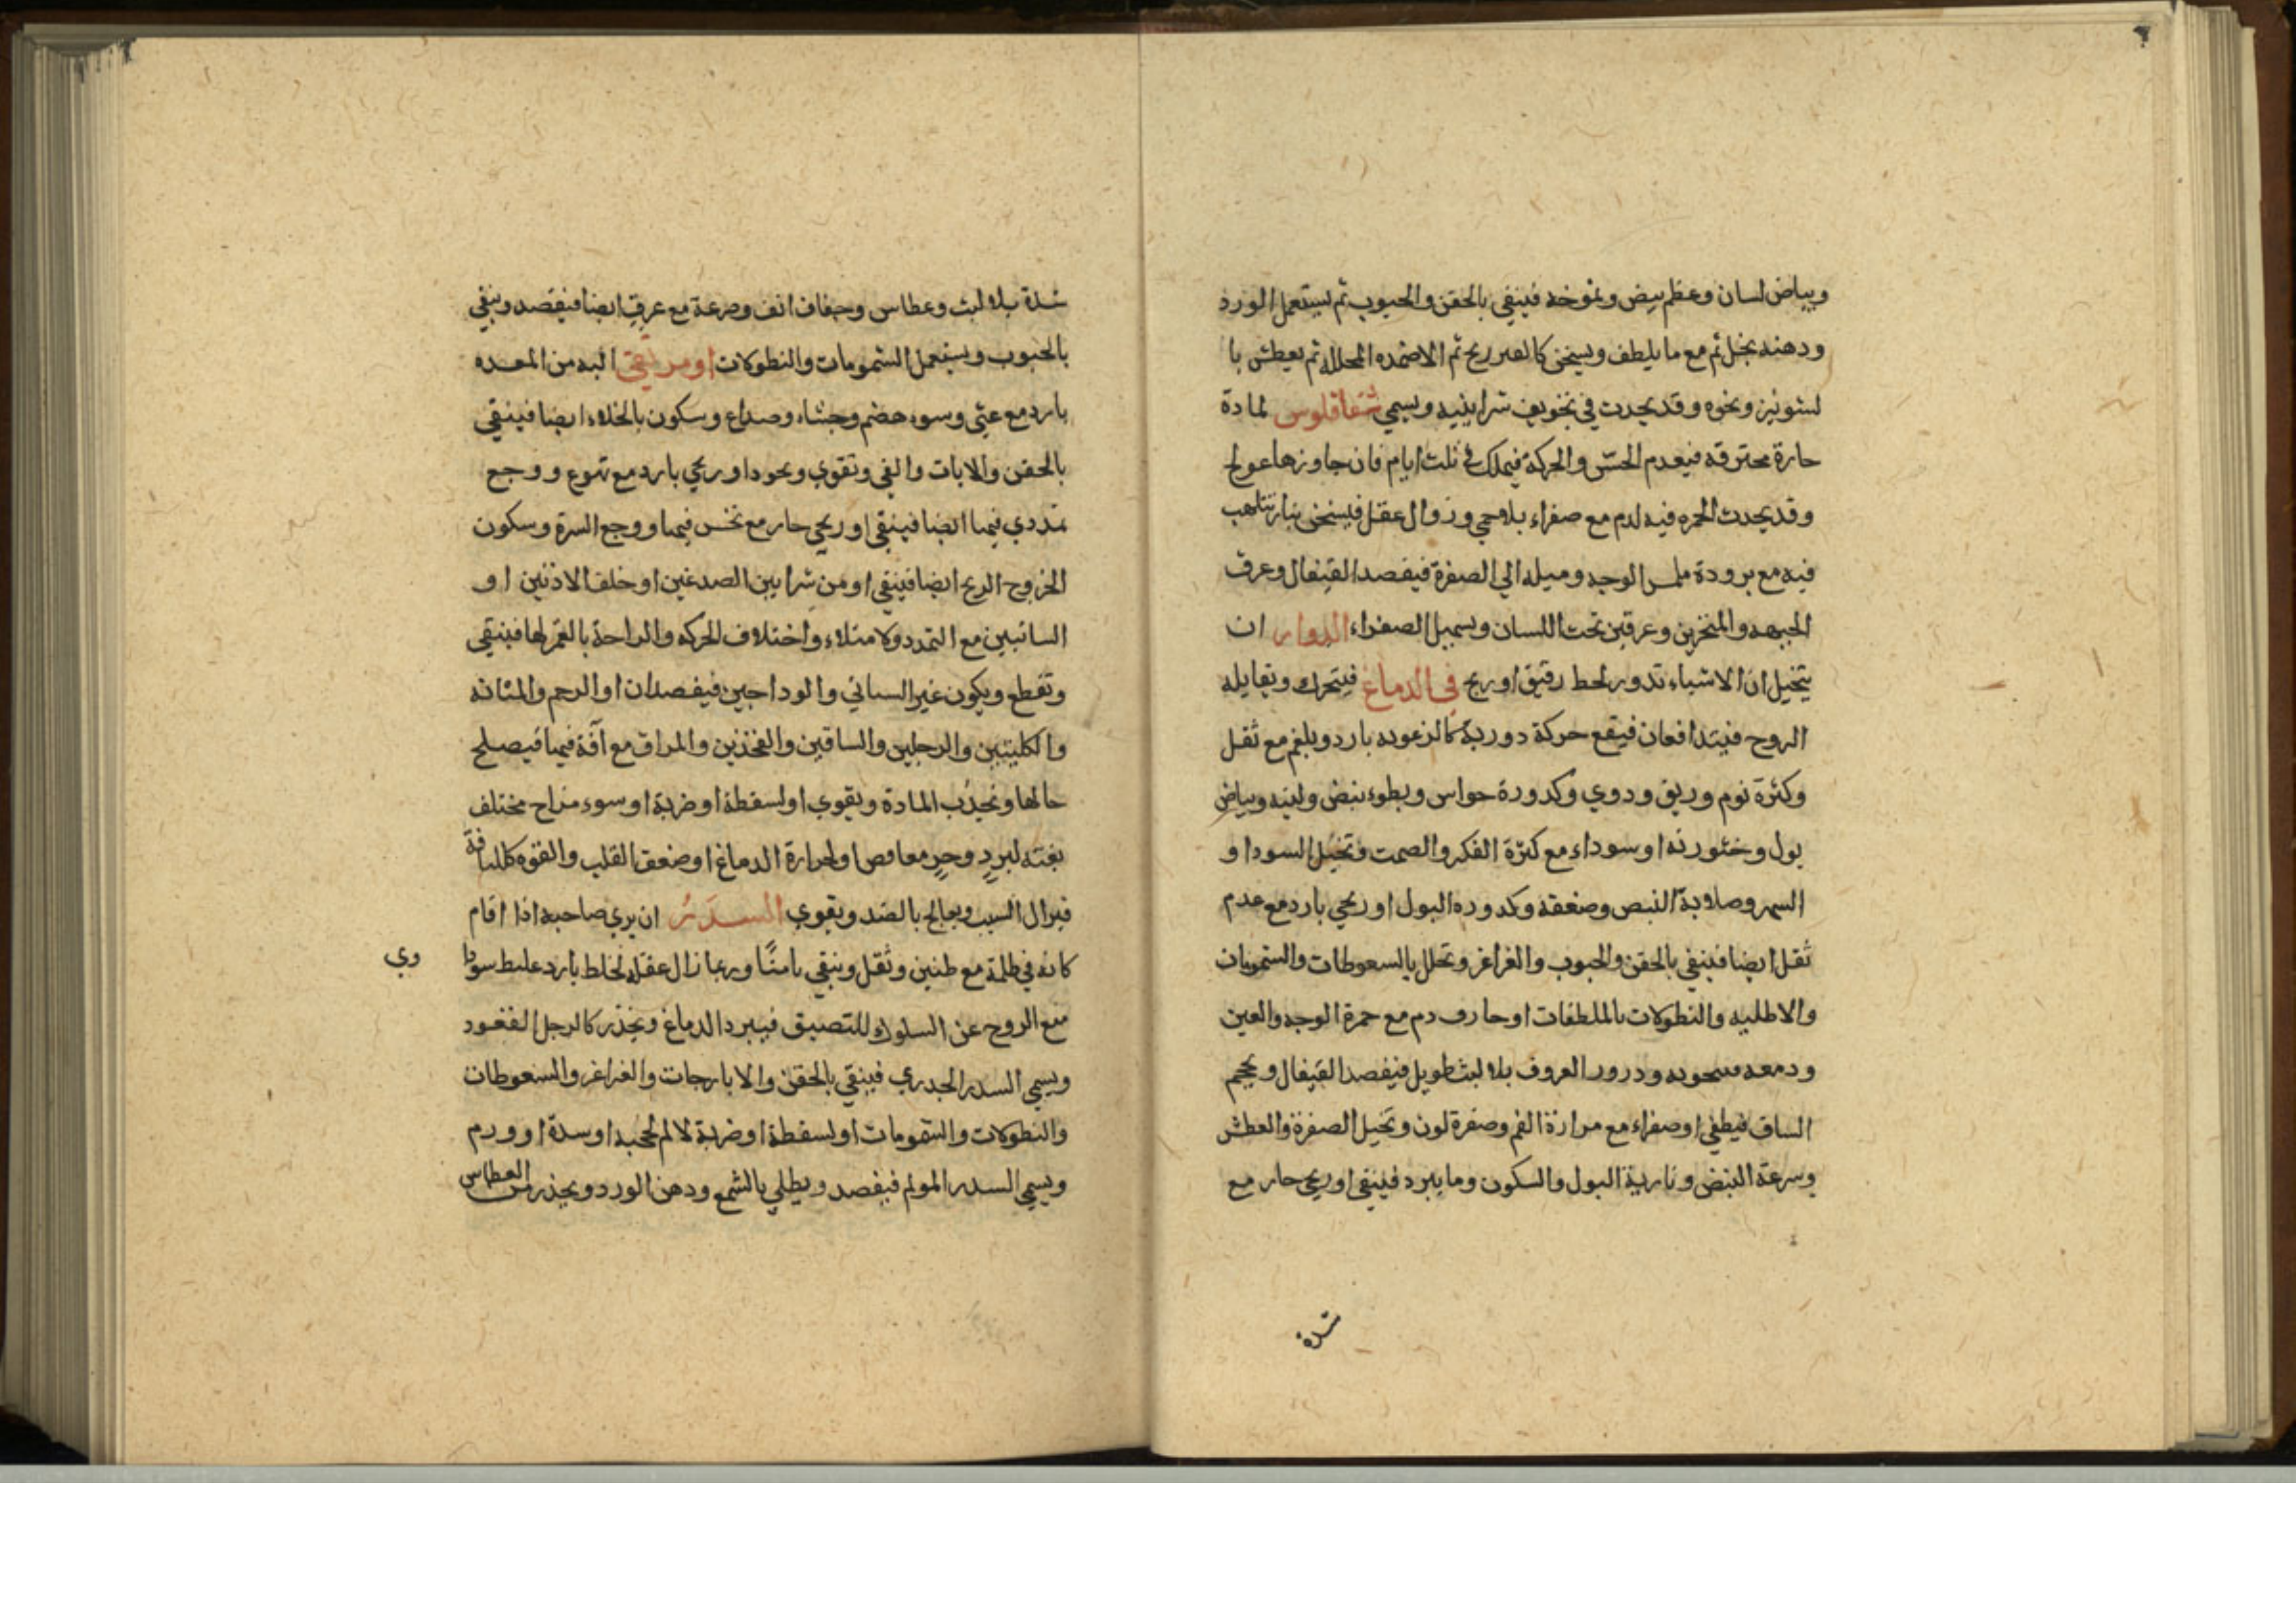 وبياض لسان وعظم نبض وتموجه فينقي بالحقن والحبوب ثم يستعمل الورد
ودهنه بخل ثم مع ما يلطف ويسخن ثم الاضمده المحلله ثم يعطش با
لشونيز ونحوه وقد يحدث في تجويف شرايينه ويسمي شقاقلوس لمادة
حارة محترقه فيعدم الحس والحركة فيهلك في ثلث ايام فان جاوزها عولج
وقد يحدث الحمره فيه لدم مع صفراء بلا حمي وزوال عقل فيسخن بنار تتلهب
فيه مع برودة ملمس الوجه وميله الي الصفرة فيفصد القيفال وعرق
الجبهه والمنخرين وعرقين تحت اللسان ويسهل الصفراء الدوار ان
يتخيل ان الاشياء تدور لخلط رقيق او ريح في الدماغ فيتحرك ويقابله
الروح فيتدافعان فيقع حركة دورية كالزعوبه بارد وبلغم مع ثقل
وكثرة نوم وريق ودوي وكدورة حواس وبطوء نبض ولينه وبياض
بول وخثورته او سوداء مع كثرة الفكر والصمت وتخيل السودا و
السهر وصلابة النبض وضعفه وكدوره البول او ريحي بارد مع عدم
ثقل ايضا فينقي بالحقن والحبوب والغراغر وتحلل بالسعوطات والشمومات
والاطليه والنطولات بالملطفات او حار ف دم مع حمرة الوجه والعين
ودمعه ودرور العروق بلا لبث طويل فيفصد القيفال ويحجم
الساق فيطفي او صفراء مع مرارة الفم وصفرة لون وتخيل الصفرة والعطش
وسرعة النبض ونارية البول والسكون وما يبرد فينقي او ريحي حار مع
شدة
شدة بلا لبث وعطاس وجفاف انف وصرعة مع عرق ايضا فيفصد وينقي
بالحبوب ويستعمل الشمومات والنطولات او مرتقي اليه من المعده
بارد مع غثي وسوء هضم وجشاء وصداع وسكون بالخلاء ايضا فينقي
بالحقن والايات والقي وتقوي او ريحي بارد مع تهوع ووجع
تمددي فيها ايضا فينقي او ريحي حار مع نخس فيها ووجع السرة وسكون
الخروج الريح ايضا فينقي او من شرايين الصدغين او خلف الاذنين او
السابتين مع التمدد والامتلاء واختلاف الحركه والراحة بالغمز لها فينقي
وتقطع ويكون غير السباتي والوداجين فيفصدان او الرحم والمثانه
والكليتين والرجلين والساقين والفخذين والمراق مع آفة فيها فيصلح
حالها ونجذب المادة ويقوي او لسقطة او ضربة او سوء مزاج مختلف
بغته لبرد وحر مغافص او لحرارة الدماغ او ضعف القلب والقوه كللنافة
فيزال السبب ويعالج بالضد ويقوي السدر ان يري صاحبه اذا اقام
كانه في ظلمة مع طنين وثقل وينقي بامنا وربما زال عقله لخلط بارد غليظ سودا
وي
منع الروح عن السلوك للتضييق فيبرد الدماغ ويخذر كالرجل القعود
ويسمي السدر الخدري فينقي بالحقن والايارجات والغراغر والسعوطات
والنطولات والشمومات او لسقطة او ضربة لالم لحجبه او سدة او ورم
ويسمي السدر المولم فيفصد ويطلي بالشمع ودهن الورد ويحذر من العطاس